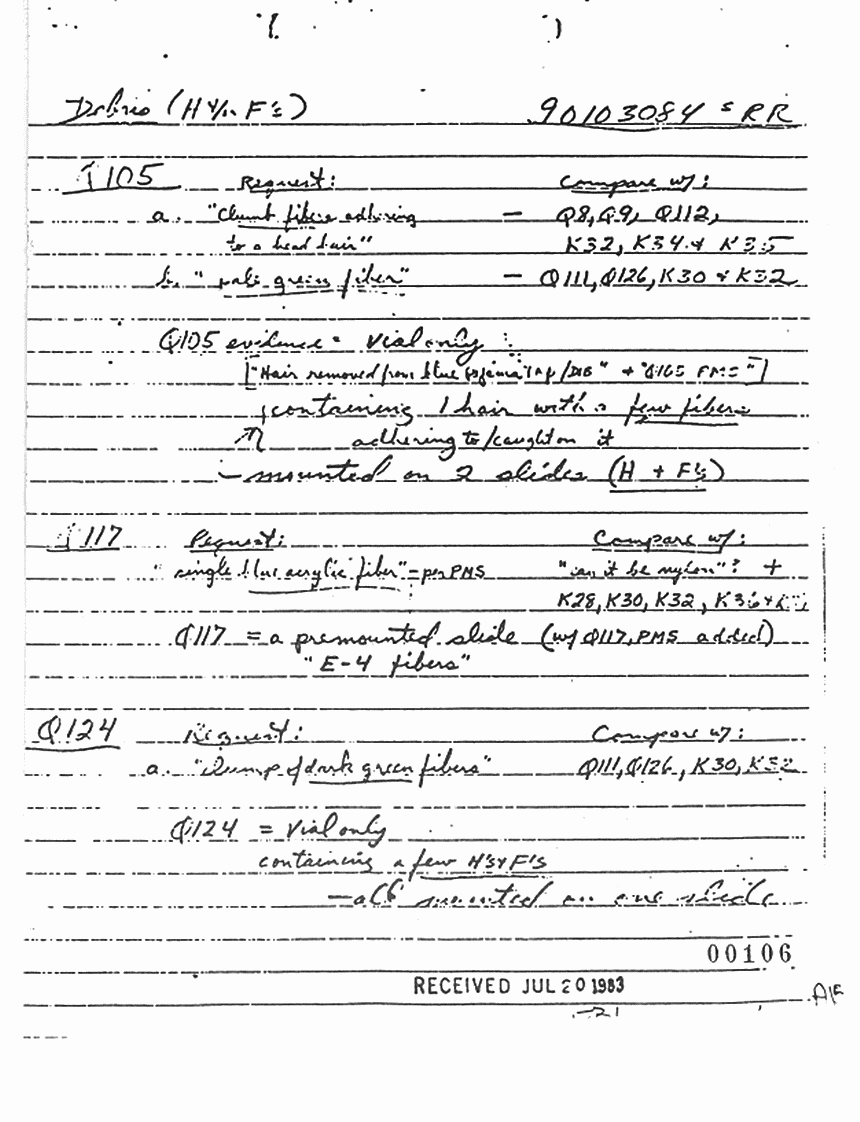 Debris (H &/or F's) 90103084 S RR
Q105 Request: Compare w/:
a. "Clump fibers adhering — Q8, Q9, Q112,
to a head hair" K32, K34 & K35
b. "pale green fiber" — Q111, Q126, K30 & K32
Q105 evidence = Vial only :
["Hair removed from blue pajama top/DIB" + "Q105 PMS"]
containing 1 hair with a few fibers
adhering to/caught on it
— mounted on 2 slides (H + F's)
Q117 Request: Compare w/:
"single blue acrylic fiber" – per PMS "can it be nylon"? +
K28, K30, K32, K36 &
Q117 = a premounted slide (w/ Q117, PMS added)
"E-4 fibers"
Q124 Request: Compare w/:
a. "Clump of dark green fibers" Q111, Q126, K30, K32
Q124 = Vial only
containing a few H's & F's
— all mounted on one slide
00106
RECEIVED JUL 20 1983